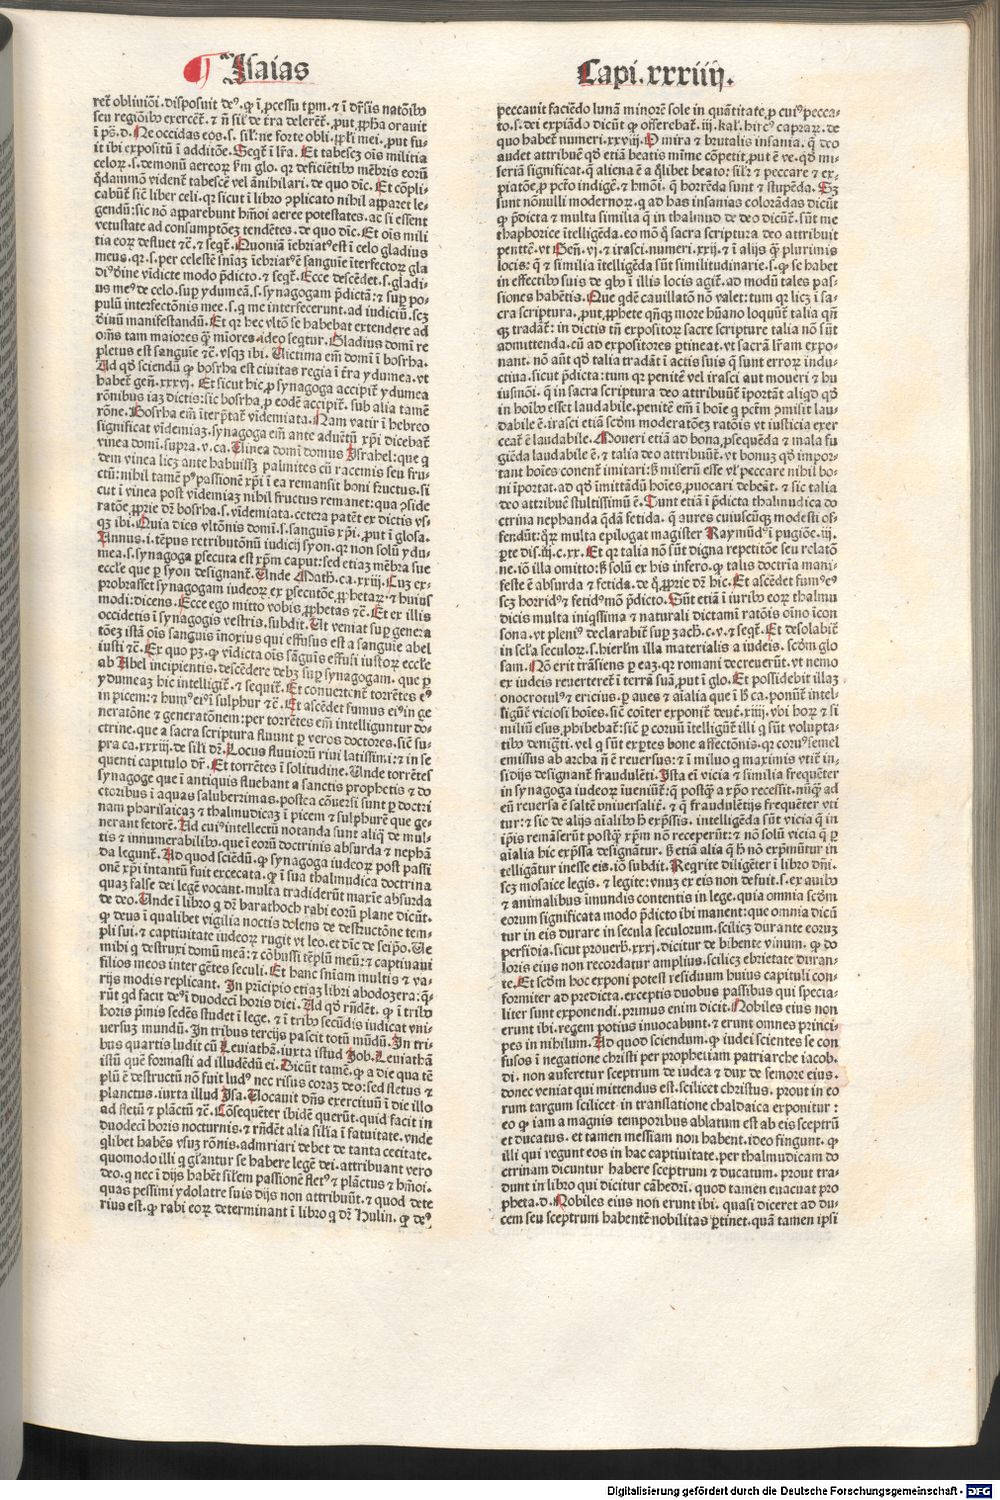 Isaias
Capi. xxxiiij.
ret obliuiõi. disposuit deꝰ. ꝙ ĩ ꝓcessu tꝑm. ⁊ ĩ dr̃sis natõibꝰ
seu regiõibꝰ exercẽt. ⁊ ñ sil' de t̃ra delerẽt. ꝓut ꝓpħa orauit
ĩ ps̃. d. Ne occidas eos. s. sil': ne forte obli. ꝓp̃li mei. ꝓut fu-
it ibi expositũ ĩ additõe. Seqt̃ ĩ lr̃a. Et tabescꝫ oĩs militia
celoꝝ. s. demonũ aereoꝝ ẜm glo. qꝛ deficiẽtibꝰ mẽbris eorũ
q̃dammõ vident̃ tabescẽ vel ãnihilari. de quo dic̃. Et cõpli-
cabũt̃ sic̃ liber celi. qꝛ sicut ĩ libro ↄplicato nihil apparet le-
gendũ: sic nõ apparebunt hm̃oi aeree potestates. ac si essent
vetustate ad consumptõeꝫ tendẽtes. de quo dic̃. Et oĩs mili
tia eoꝝ defluet ⁊c̃. ⁊ seqt̃. Quoniã ĩebriatꝰ est ĩ celo gladius
meus. qꝛ. s. per celestẽ sñiaꝫ ĩebriatꝰ ẽ sanguĩe ĩterfectoꝝ gla
diꝰ diuĩe vĩdicte modo p̃dicto. ⁊ seqt̃. Ecce descẽdet. s. gladi-
us meꝰ de celo. suꝑ ydumeã. s. synagogam p̃dictã: ⁊ suꝑ po-
pulũ interfectõnis mee. s. q̃ me interfecerunt. ad iudiciũ. scꝫ
diuinũ manifestandũ. Et qꝛ hec vltõ se habebat extendere ad
om̃s tam maiores q̃ꝫ mĩores. ideo seqtur. Gladius domĩ re
pletus est sanguĩe ⁊c̃. vsqꝫ ibi. Uictima em̃ domĩ ĩ bosrha.
Ad qd̃ sciendũ ꝙ bosrha est ciuitas regia ĩ t̃ra ydumea. vt
habet̃ geñ. xxxvj. Et sicut hic ꝓ synagoga accipit̃ ydumea
rõnibus iaꝫ dictis: sic bosrha ꝓ eodẽ accipit̃. sub alia tamẽ
rõne. Bosrha em̃ ĩterp̃tat̃ vĩdemiata. Nam vatir ĩ hebreo
significat vĩdemiaꝫ. synagoga em̃ ante aduẽtũ xp̃i dicebat̃
vinea domĩ. supra. v. ca. Uinea domĩ domus Israhel: que q̃
dem vinea licꝫ ante habuissꝫ palmites cũ racemis seu fru-
ctũ: nihil tamẽ pꝰ passionẽ xp̃i ĩ ea remansit boni fructus. si
cut ĩ vinea post vĩdemiaꝫ nihil fructus remanet: qua ↄside
ratõe ꝓprie dr̃ bosrha. s. vĩdemiata. cetera patẽt ex dictis vs-
qꝫ ibi. Quia dies vltõnis domĩ. s. sanguis xp̃i. ꝓut ĩ glosa.
Annus. i. tẽpus retributõnũ iudicij syon. qꝛ non solũ ydu-
mea. s. synagoga ꝑsecuta est xp̃m caput: sed etiaꝫ mẽbra sue
eccl'ie que ꝑ syon designant̃. Unde Math̃. ca. xxiij. Cuꝫ ex-
probrasset synagogam iudeoꝝ ex ꝑsecutõe ꝓphetaꝝ ⁊ huius
modi: dicens. Ecce ego mitto vobis ꝓphetas ⁊c̃. Et ex illis
occidetis ĩ synagogis vestris. subdit. Ut veniat suꝑ genera
tõeꝫ istã oĩs sanguis ĩnoxius qui effusus est a sanguĩe abel
iusti ⁊c̃. Ex quo pꝫ. ꝙ vĩdicta oĩs sanguĩs effusi iustoꝝ eccl'ie
ab Abel incipientis. descẽdere debꝫ suꝑ synagogam. que ꝑ
ydumeaꝫ hic intelligit̃. ⁊ sequit̃. Et conuertent̃ torrẽtes eiꝰ
in picem: ⁊ humꝰ eiꝰ ĩ sulphur ⁊c̃. Et ascẽdet fumus eiꝰ in ge
neratõne ⁊ generatõnem: per torrẽtes em̃ intelliguntur do-
ctrine. que a sacra scriptura fluunt ꝑ veros doctores. sic̃ su-
pra ca. xxxiij. de sil'i dr̃. Locus fluuiorũ riui latissim̃. i: ⁊ in se
quenti capitulo dr̃. Et torrẽtes ĩ solitudine. Unde torrẽtes
synagoge que ĩ antiquis fluebant a sanctis prophetis ⁊ do
ctoribus ĩ aquas saluberrimas. postea cõuersi sunt ꝑ doctri
nam pharisaicaꝫ ⁊ thalmudicaꝫ ĩ picem ⁊ sulphurẽ que ge-
nerant fetorẽ. Ad cuiꝰ intellectũ notanda sunt aliq̃ de mul-
tis ⁊ innumerabilibꝰ. que ĩ eorũ doctrinis absurda ⁊ nephã
da legunt̃. Ad quod sciẽdũ. ꝙ synagoga iudeoꝝ post passi
onẽ xp̃i intantũ fuit excecata. ꝙ ĩ sua thalmudica doctrina
quaꝫ false dei legẽ vocant. multa tradiderũt maxĩe absurda
de deo. Unde ĩ libro q̃ dr̃ barathoch rabi eorũ plane dicũt.
ꝙ deus ĩ qualibet vigilia noctis dolens de destructõne tem-
pli sui. ⁊ captiuitate iudeoꝝ rugit vt leo. et dic̃ de seip̃o. Ue
mihi q̃ destruxi domũ meã: ⁊ cõbussi tẽplũ meũ: ⁊ captiuaui
filios meos inter gẽtes seculi. Et hanc sñiam multis ⁊ va-
rijs modis replicant. In prĩcipio etiaꝫ libri abodozera: q̃-
rũt qd̃ facit deꝰ ĩ duodecĩ horis diei. Ad qd̃ rñdẽt. ꝙ ĩ tribꝰ
horis p̃mis sedẽs studet ĩ lege. ⁊ ĩ tribꝰ secũdis iudicat vni-
uersuꝫ mundũ. In tribus tercijs pascit totũ mũdũ. In tri-
bus quartis ludit cũ Leuiathã. iuxta istud Job. Leuiathã
istũ quẽ formasti ad illudẽdũ ei. Dicũt tamẽ. ꝙ a die qua tẽ
plũ ẽ destructũ nõ fuit ludꝰ nec risus coraꝫ deo: sed fletus ⁊
planctus. iuxta illud Isa. Uocauit dñs exercituũ ĩ die illo
ad fletũ ⁊ plãctũ ⁊c̃. Cõsequẽter ibidẽ querũt. quid facit in
duodecĩ horis nocturnis. ⁊ rñdẽt alia sil'ia ĩ fatuitate. vnde
q̃libet habẽs vsuꝫ rõnis. admirari debet de tanta cecitate.
quomodo illi q̃ gl'antur se habere legẽ dei. attribuant vero
deo. q̃ nec ĩ dijs habẽt sil'em passionẽ fletꝰ ⁊ plãctus ⁊ hm̃oi.
quas pessimi ydolatre suis dijs non attribuũt. ⁊ quod dete
rius est. ꝙ rabi eoꝝ determinant ĩ libro q̃ dr̃ Hulin. ꝙ deꝰ
peccauit faciẽdo lunã minorẽ sole in quãtitate. ꝓ cuiꝰ pecca-
to. s. dei expiãdo dicũt ꝙ offerebat̃. iij. kal'. hircꝰ capraꝝ. de
quo habet̃ numeri. xxviij. O mira ⁊ brutalis insania. q̃ deo
audet attribuẽ qd̃ etiã beatis mĩme cõpetit. ꝓut ẽ ve. qd̃ mi-
seriã significat. q̃ aliena ẽ a q̃libet beato: sil'r ⁊ peccare ⁊ ex-
piatõe. ꝓ pctõ indigẽ. ⁊ hm̃oi. q̃ horrẽda sunt ⁊ stupẽda. Sꝫ
sunt nõnulli modernoꝝ. q̃ ad has insanias colorãdas dicũt
ꝙ p̃dicta ⁊ multa similia q̃ in thalmud de deo dicũt̃. sũt me
thaphorice ĩtelligẽda. eo mõ q̃ sacra scriptura deo attribuit
penitẽ. vt Geñ. vi. ⁊ irasci. numeri. xxij. ⁊ ĩ alijs q̃ꝫ plurimis
locis: q̃ ⁊ similia ĩtelligẽda sũt similitudinarie. s. ꝙ se habet
in effectibꝰ suis de qbꝰ ĩ illis locis agit̃. ad modũ tales pas-
siones habẽtis. Que qdẽ cauillatõ nõ valet: tum qꝛ licꝫ ĩ sa-
cra scriptura. ꝓut. ꝓphete qñqꝫ more hũano loquũt̃ talia qñ
qꝫ tradãt̃: in dictis tñ expositoꝝ sacre scripture talia nõ sũt
admittenda. cũ ad expositores ꝑtineat. vt sacrã lr̃am expo-
nant. nõ aũt qd̃ talia tradãt ĩ actis suis q̃ sunt erroꝝ indu-
ctiua. sicut p̃dicta: tum qꝛ penitẽ vel irasci aut moueri ⁊ hu
iusmõi. q̃ in sacra scriptura deo attribuũt̃ ĩportãt aliqd̃ qd̃
in hoĩbꝰ esset laudabile. penitẽ em̃ ĩ hoĩe q̃ pctm̃ ↄmisit lau-
dabile ẽ. irasci etiã scd̃m moderatõeꝫ ratõis vt iusticia exer
ceat̃ ẽ laudabile. Moneri etiã ad bona ꝓsequẽda ⁊ mala fu
giẽda laudabile ẽ. ⁊ talia deo attribuũt̃. vt bonuꝫ qd̃ impor-
tant hoĩes conent̃ imitari: sꝫ miserũ esse vl' peccare nihil bo-
ni ĩportat. ad qd̃ imittãdũ hoĩes ꝓuocari debeãt. ⁊ sic talia
deo attribuẽ stultissimũ ẽ. Sunt etiã ĩ p̃dicta thalmudica do
ctrina nephanda q̃dã fetida. q̃ aures cuiuscũqꝫ modesti of-
fendũt: q̃ꝝ multa epilogat magister Raymũdꝰ ĩ pugiõe. iij.
ꝑte dis. iij. c. xx. Et qꝛ talia nõ sũt digna repetitõe seu relatõ
ne. iõ illa omitto: sꝫ solũ ex his infero. ꝙ talis doctrĩa mani-
feste ẽ absurda ⁊ fetida. de q̃ ꝓprie dr̃ hic. Et ascẽdet fumꝰ eiꝰ
scꝫ horridꝰ ⁊ fetidꝰ mõ p̃dicto. Sũt etiã ĩ iuribꝰ eoꝝ thalmu
dicis multa iniqssima ⁊ naturali dictamĩ ratõis oĩno ĩcon
sona. vt pleniꝰ declarabit̃ suꝑ zach̃. c. v. ⁊ seqt̃. Et desolabit̃
in sc'l'a seculoꝝ. s. hierl'm illa materialis a iudeis. scd̃m glo
sam. Nõ erit trãsiens ꝑ eaꝫ. qꝛ romani decreuerũt. vt nemo
ex iudeis reuerteret̃ ĩ terrã suã. ꝓut ĩ glo. Et possidebit illaꝫ
onocrotulꝰ ⁊ ericius. ꝑ aues ⁊ aĩalia que ĩ h̃ ca. ponũt̃ intel-
ligũt̃ viciosi hoĩes. sic̃ cõiter exponit̃ deut̃. xiiij. vbi hoꝝ ⁊ si
miliũ esus ꝓhibebat̃: sic̃ ꝑ coruũ ĩtelligũt̃ illi q̃ sũt volupta-
tibꝰ denigr̃ti. vel q̃ sũt exꝑtes bone affectõnis. qꝛ coruꝰ semel
emissus ab archa ñ ẽ reuersus: ⁊ ĩ miluo q̃ maximis vtit̃ in-
sidijs designant̃ fraudulẽti. Ista em̃ vicia ⁊ similia frequẽter
in synagoga iudeoꝝ ĩueniũt̃: q̃ postq̃ꝫ a xp̃o recessit. nũq̃ꝫ ad
eũ reuersa ẽ saltẽ vniuersalit̃. ⁊ q̃ fraudulẽtijs frequẽter vti
tur: ⁊ sic de alijs aĩalibꝰ h̃ exp̃ssis. intelligẽda sũt vicia q̃ in
ip̃is remãserũt postq̃ꝫ xp̃m nõ receperũt: ⁊ nõ solũ vicia q̃ ꝑ
aĩalia hic exp̃ssa designãtur. sꝫ etiã alia q̃ h̃ nõ exp̃mũtur in
telligãtur inesse eis. iõ subdit. Reqrite diligẽter ĩ libro dñi.
scꝫ mosaice legis. ⁊ legite: vnuꝫ ex eis non defuit. s. ex auibꝰ
⁊ animalibus ĩmundis contentis in lege. quia omnia scd̃m
eorum significata modo p̃dicto ibi manent: que omnia dicũ
tur in eis durare in secula seculorum. scilicꝫ durante eoruꝫ
perfidia. sicut prouerb̃. xxxj. dicitur de bibente vinum. ꝙ do
loris eius non recordatur amplius. scilicꝫ ebrietate duran-
te. Et scd̃m hoc exponi potest residuum huius capituli con-
formiter ad predicta. exceptis duobus passibus qui specia-
liter sunt exponendi. primus enim dicit. Nobiles eius non
erunt ibi. regem potius inuocabunt. ⁊ erunt omnes princi-
pes in nihilum. Ad quod sciendum. ꝙ iudei scientes se con
fusos ĩ negatione christi per prophetiam patriarche iacob.
di. non auferetur sceptrum de iudea ⁊ dux de femore eius.
donec veniat qui mittendus est. scilicet christus. prout in eo
rum targum scilicet in translatione chaldaica exponitur:
eo ꝙ iam a magnis temporibus ablatum est ab eis sceptrũ
et ducatus. et tamen messiam non habent. ideo fingunt. ꝙ
illi qui regunt eos in hac captiuitate. per thalmudicam do
ctrinam dicuntur habere sceptrum ⁊ ducatum. prout tra-
dunt in libro qui dicitur cãhedrĩ. quod tamen euacuat pro
pheta. d. Nobiles eius non erunt ibi. quasi diceret ad du-
cem seu sceptrum habentẽ nobilitas ꝑtinet. quã tamen ipsi
Digitalisierung gefördert durch die Deutsche Forschungsgemeinschaft - DFG